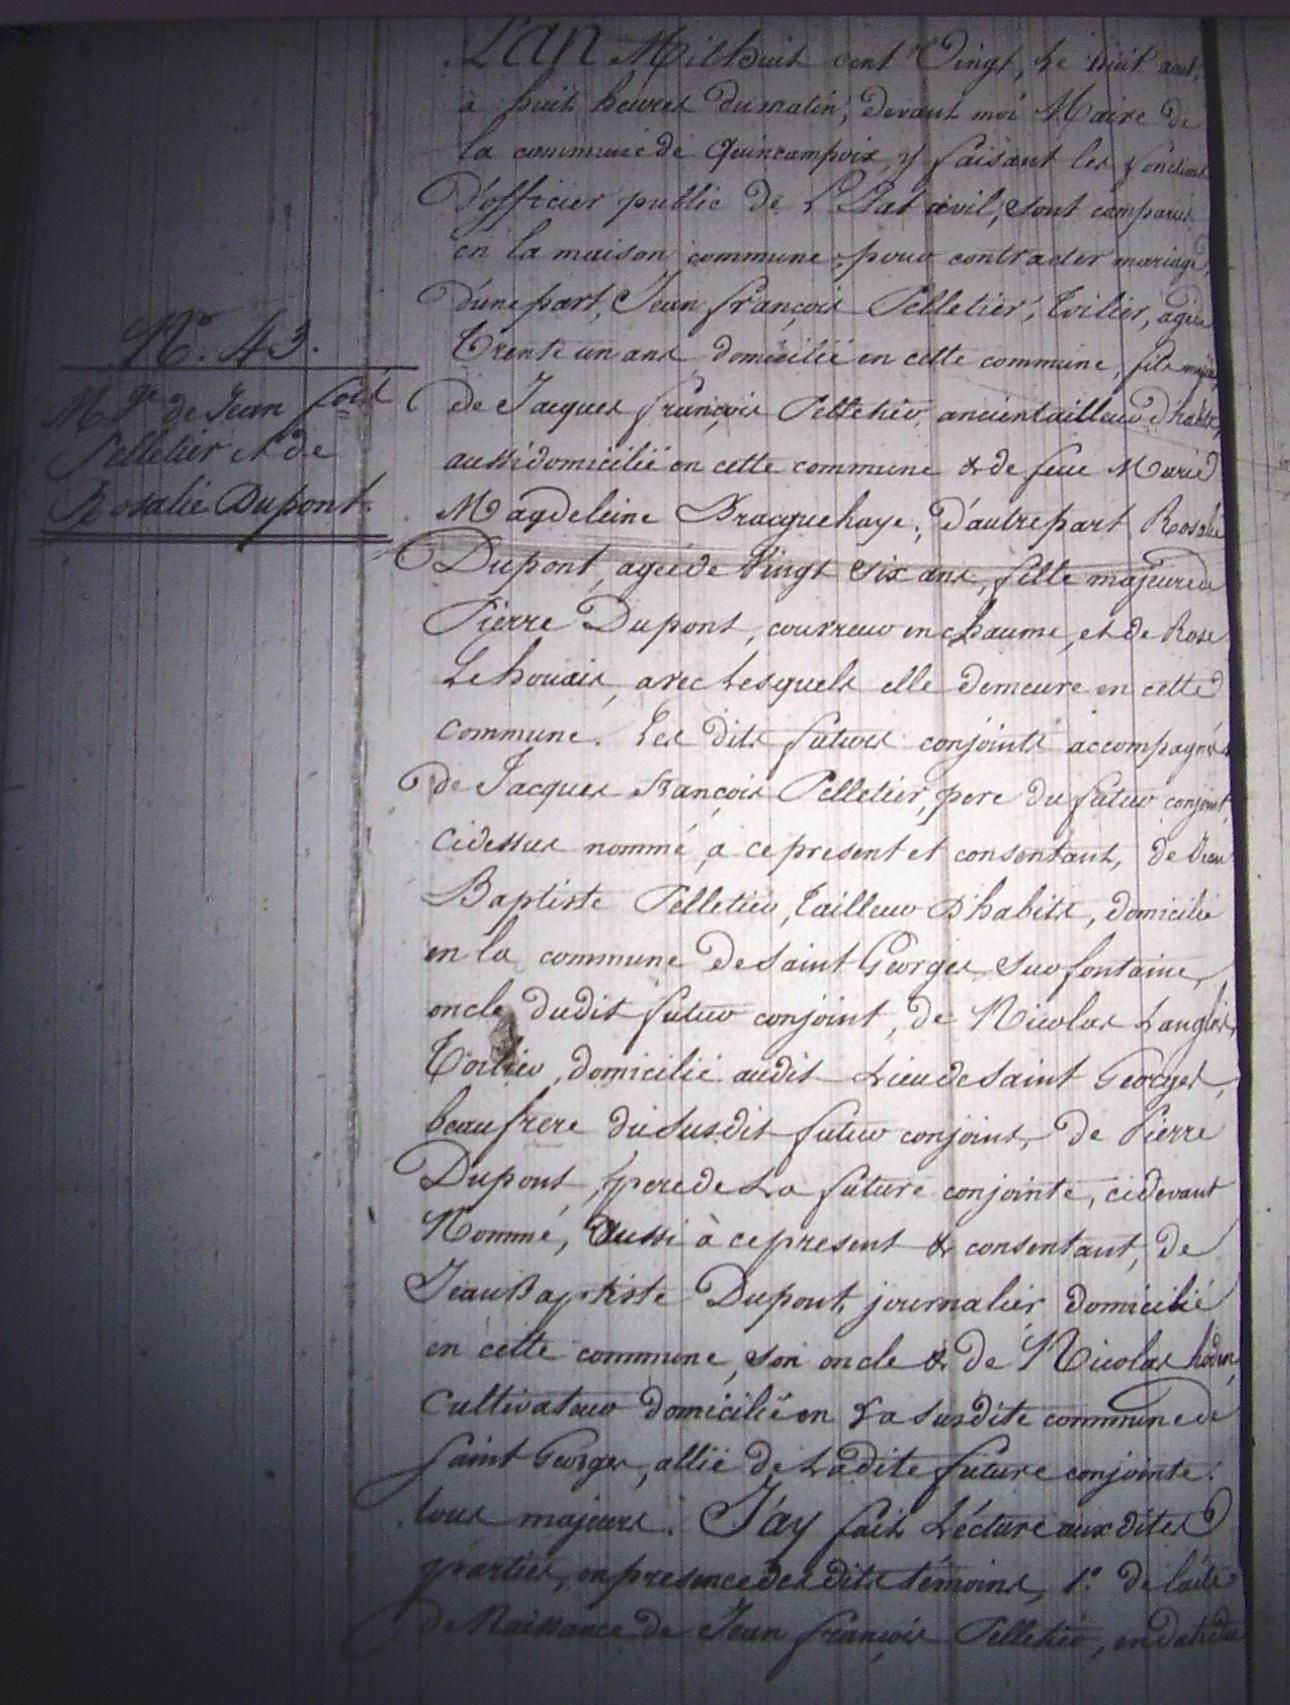 L'an Mil huit cent Vingt, Le huit aout,
à huit heures du matin, devant moi Maire de
la commune de Quincampoix, y faisant les fonctions
D'officier public de L'Etat civil, sont comparus
en la maison commune pour contracter mariage,
d'une part, Jean françois Pelletier, toilier, agé de
N°. 43.
Trente un ans domicilié en cette commune, fils majeur
Mge de Jean fois
de Jacques françois Pelletier, ancien tailleur d'habits,
Pelletier et de
aussi domicilié en cette commune & de feue Marie
Rosalie Dupont.
Magdeleine Bracquehaye; d'autre part Rosalie
Dupont, agée de Vingt six ans, fille majeure de
Pierre Dupont, couvreur en chaume, et de Rose
Lehouais, avec Lesquels elle demeure en cette
commune. Les dits futurs conjoints accompagnés
de Jacques françois Pelletier, pere du futur conjoint
cidessus nommé, à ce present et consentant, de Jean
Baptiste Pelletier, Tailleur D'habits, domicilié
en la commune de Saint Georges sur fontaine,
oncle dudit futur conjoint, de Nicolas Langlois,
Toilier, domicilié audit Lieu de Saint Georges,
beaufrere du susdit futur conjoint, de Pierre
Dupont, pere de La future conjointe, cidevant
Nommé, Aussi à ce present & consentant, de
Jean Baptiste Dupont, journalier domicilié
en cette commune, son oncle & de Nicolas
Cultivateur domicilié en La susdite commune de
Saint Georges, allié de Ladite future conjointe.
tous majeurs. J'ay fait Lécture aux dites
parties, en presence des dits témoins, 1°. de l'acte
de Naissance de Jean françois Pelletier, en date du